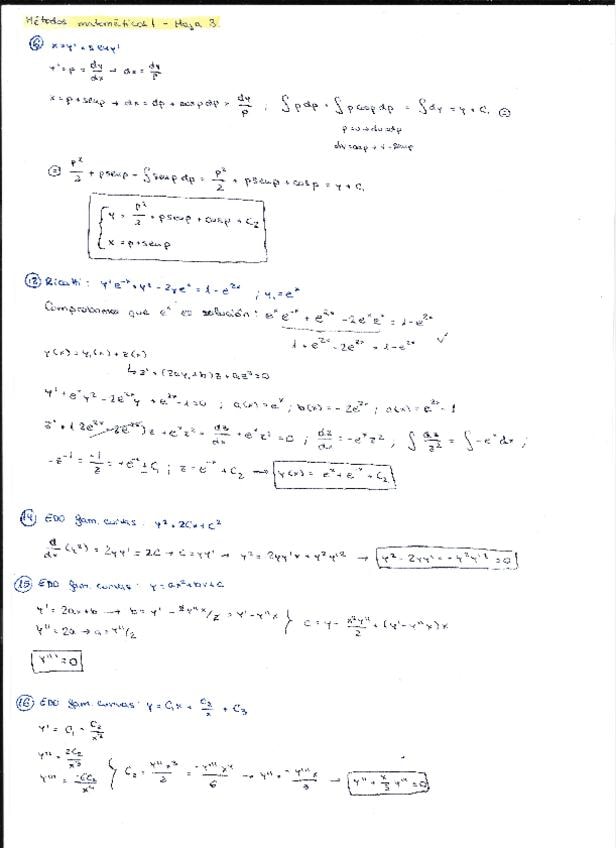 Métodos matemáticos 1 - Hoja 3.
⑧ x = y' + sen y'
y' = p = dy/dx → dx = dy/p
x = p + sen p → dx = dp + cos p dp = dy/p ; ∫ p dp + ∫ p cos p dp = ∫ dy = y + C₁ ⊜
p = u → du = dp
dv = cos p → v = sen p
⊜ p²/2 + p sen p - ∫ sen p dp = p²/2 + p sen p + cos p = y + C₁
{ y = p²/2 + p sen p + cos p + C₂
x = p + sen p
⑫ Ricatti: y'e⁻ˣ + y² - 2yeˣ = 1 - e²ˣ ; y₁ = eˣ
Comprobamos que eˣ es solución: eˣe⁻ˣ + e²ˣ - 2eˣeˣ = 1 - e²ˣ
1 + e²ˣ - 2e²ˣ = 1 - e²ˣ ✓
y(x) = y₁(x) + z(x)
↳ z' + (2ay₁ + b)z + az² = 0
y' + eˣy² - 2e²ˣy + e³ˣ - eˣ = 0 ; a(x) = eˣ ; b(x) = -2e²ˣ ;
z' + (2e²ˣ - 2e²ˣ)z + eˣz² = dz/dx + eˣz² = 0 ; dz/dx = -eˣz² ; ∫ dz/z² = ∫ -eˣdx ;
-z⁻¹ = -1/z = ; z = e⁻ˣ + C₂ → y(x) = eˣ + e⁻ˣ + C₂
⑭ EDO fam. curvas: y² = 2Cx + C²
d/dx (y²) = 2yy' = 2C → C = yy' → y² = 2yy'x + y²y'² → y² - 2yy' = - y²y'² = 0
⑮ EDO fam. curvas: y = ax² + bx + c
y' = 2ax + b → b = y' - 2y''x/2 = y' - y''x } c = y - x²y''/2 + (y' - y''x)x
y'' = 2a → a = y''/2
y''' = 0
⑯ EDO fam. curvas: y = C₁x + C₂/x + C₃
y' = C₁ - C₂/x²
y'' = 2C₂/x³
y''' = -6C₂/x⁴ } C₂ = y''x³/2 = -y'''x⁴/6 → y'' = -y'''x/3 → y'' + x/3 y''' = 0